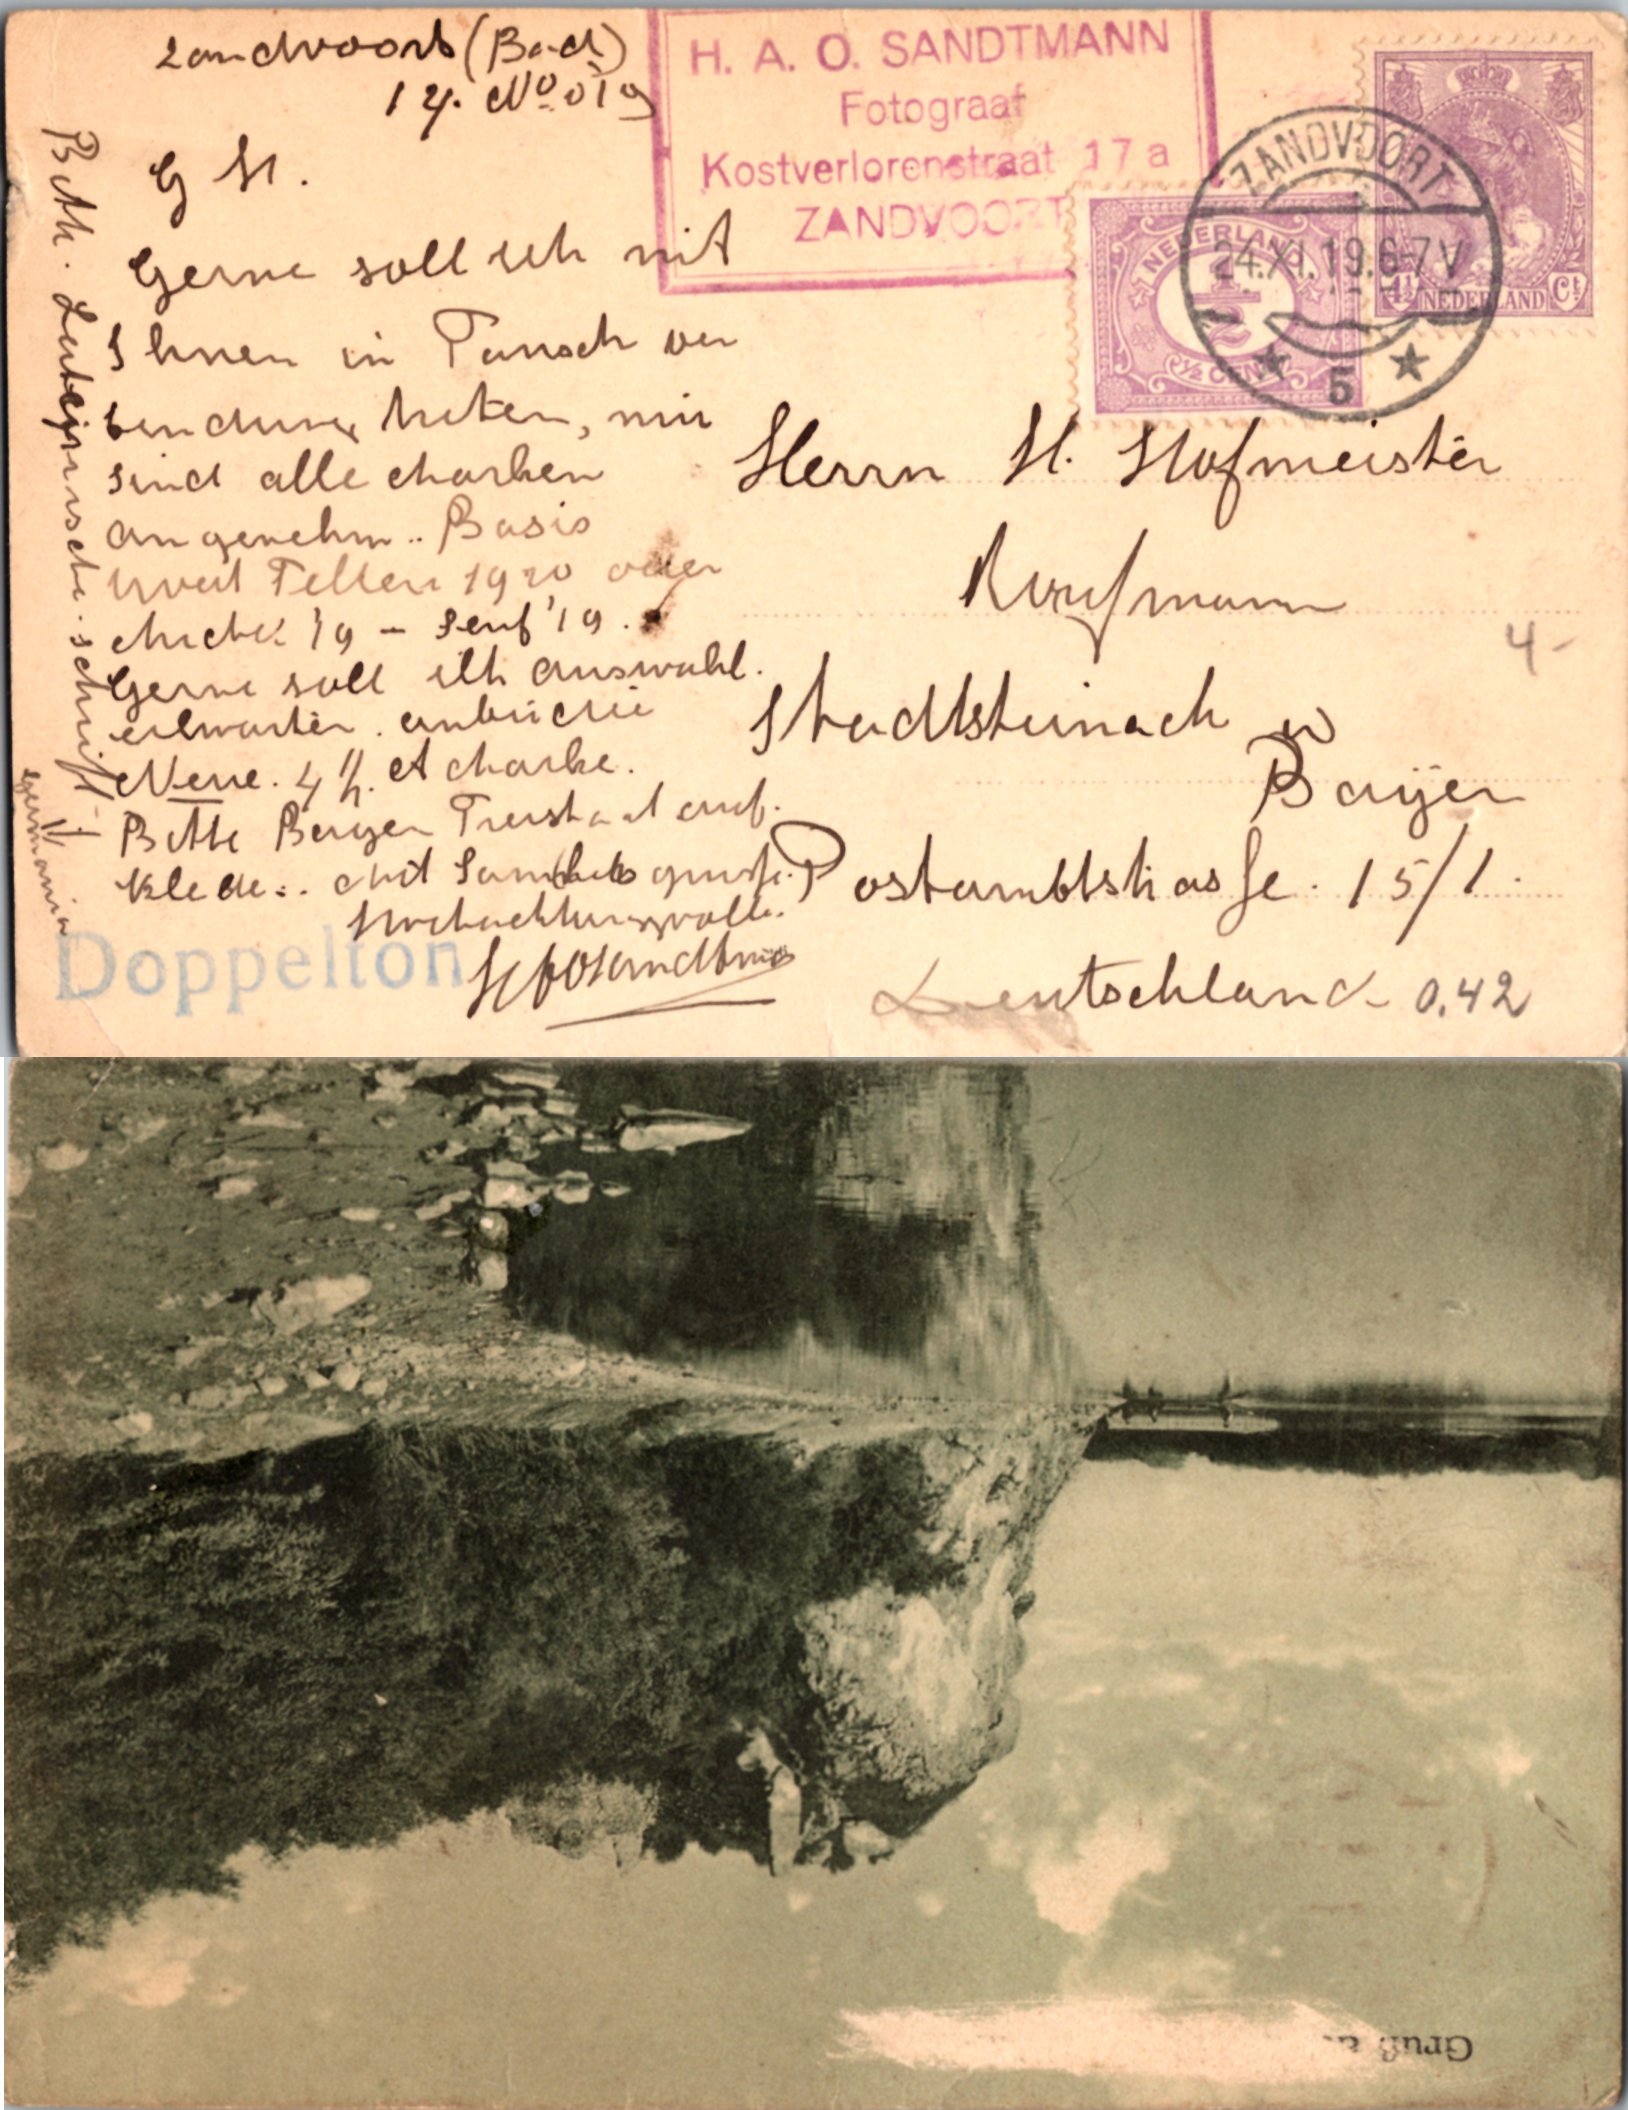 Zandvoort (Bad)
14. Nov. 019
G H.
Gerne soll ich mit
Ihnen in Tausch ver
bindung treten, mir
sind alle Marken
angenehm.. Basis
Yvert Tellier 1920 oder
Michel 19 - Senf '19.
Gerne soll ich auswahl.
erwarten.
Neue. 4 h. Marke.
Bitte Bayern Freistaat auf.
klebe.. Mit Sammler gruss.
Hochachtungsvoll.
HAOSandtmann
Bitte. Lateinische. schrift
germania
H. A. O. SANDTMANN
Fotograaf
Kostverlorenstraat 17a
ZANDVOORT
NEDERLAND
1/2
1/2 CENT
4 1/2 NEDERLAND Ct
ZANDVOORT
24.XI.19.6-7V
5
Herrn H. Hofmeister
Kaufmann
4-
Stadtsteinach
Bayern
Postamtstrasse. 15/1.
Deutschland 0,42
Doppelton
Gruß